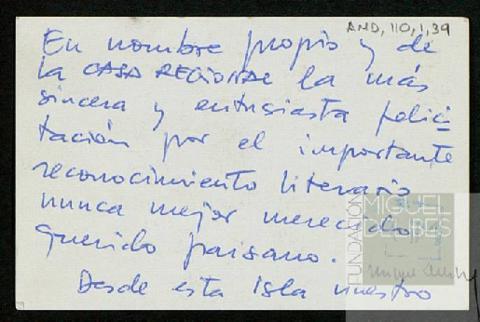 AMD, 110, 1, 39
En nombre propio y de
la CASA REGIONAL la más
sincera y entusiasta felici
tación por el importante
reconocimiento literario
nunca mejor merecido
querido paisano.
Desde esta isla nuestro
FUNDACIÓN
MIGUEL
DELIBES